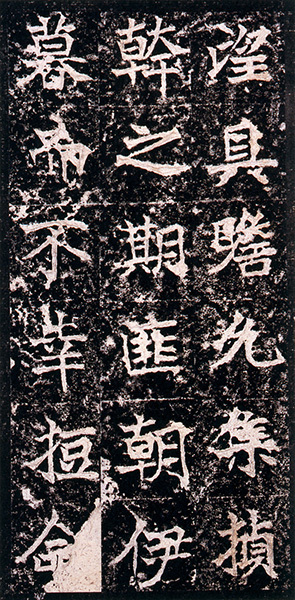 涅具瞻允集楨
幹之期匪朝伊
暮而不幸短命